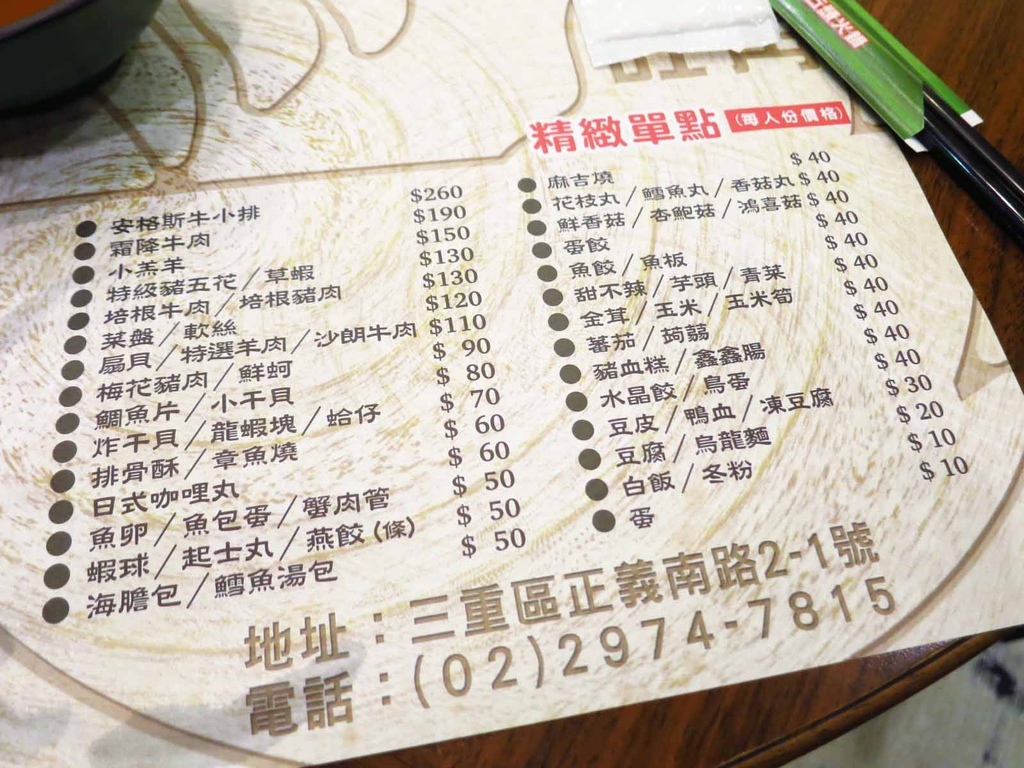 精緻單點 (每人份價格)
安格斯牛小排 $260
霜降牛肉 $190
小羔羊 $150
特級豬五花/草蝦 $130
培根牛肉/培根豬肉 $130
菜盤/軟絲 $120
扇貝/特選羊肉/沙朗牛肉 $110
梅花豬肉/鮮蚵 $ 90
鯛魚片/小干貝 $ 80
炸干貝/龍蝦塊/蛤仔 $ 70
排骨酥/章魚燒 $ 60
日式咖哩丸 $ 60
魚卵/魚包蛋/蟹肉管 $ 50
蝦球/起士丸/燕餃(條) $ 50
海膽包/鱈魚湯包 $ 50
麻吉燒 $ 40
花枝丸/鱈魚丸/香菇丸 $ 40
鮮香菇/杏鮑菇/鴻喜菇 $ 40
蛋餃 $ 40
魚餃/魚板 $ 40
甜不辣/芋頭/青菜 $ 40
金茸/玉米/玉米筍 $ 40
蕃茄/蒟蒻 $ 40
豬血糕/鑫鑫腸 $ 40
水晶餃/鳥蛋 $ 40
豆皮/鴨血/凍豆腐 $ 30
豆腐/烏龍麵 $ 20
白飯/冬粉 $ 10
蛋 $ 10
地址：三重區正義南路2-1號
電話：(02)2974-7815
火鍋